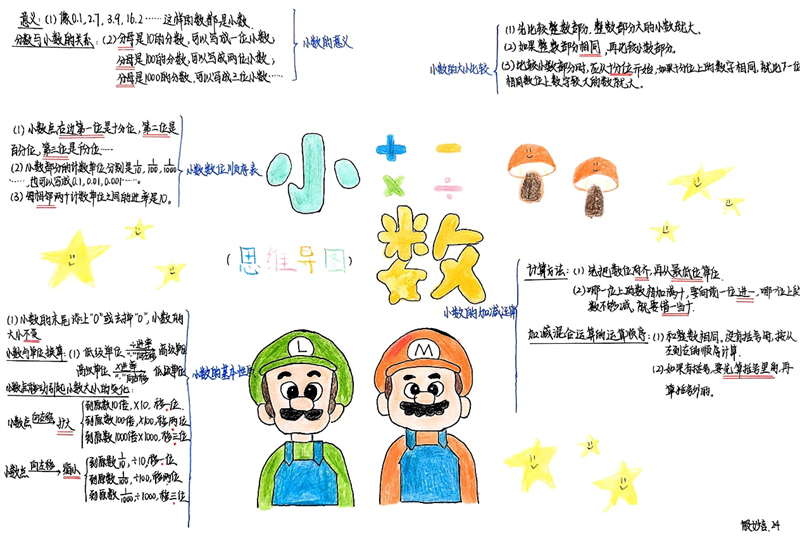 意义:(1)像0.1,2.7,3.9,16.2……这样的数都是小数
分数与小数的关系:(2)分母是10的分数,可以写成一位小数;
分母是100的分数,可以写成两位小数;
分母是1000的分数,可以写成三位小数……
小数的意义
小数的大小比较
(1)先比较整数部分,整数部分大的小数就大。
(2)如果整数部分相同,再比较小数部分。
(3)比较小数部分时,应从十分位开始,如果十分位上的数字相同,就比下一位
相同数位上数字较大的数就大。
(1)小数点右边第一位是十分位,第二位是
百分位,第三位是千分位……
(2)小数部分的计数单位分别是1/10,1/100,1/1000
……,也可以写成0.1,0.01,0.001……。
(3)每相邻两个计数单位之间的进率是10。
小数数位顺序表
小
+ −
× ÷
数
(思维导图)
小数的加减运算
计算方法:(1)先把数位对齐,再从最低位算位
(2)哪一位上的数相加满十,要向前一位进一,哪一位上的
数不够减,就要借一当十.
加减混合运算的运算顺序:(1)和整数相同,没有括号的,按从
左到右的顺序计算.
(2)如果有括号,要先算括号里的,再
算括号外的.
(1)小数的末尾添上"0"或去掉"0",小数的
大小不变
小数与单位换算:(1)低级单位 ÷进率 高级单位
高级单位 ×进率 低级单位
小数点移动引起小数大小的变化:
小数点 向右移 扩大
到原数10倍,×10,移一位
到原数100倍,×100,移两位
到原数1000倍×1000,移三位
小数点 向左移 缩小
到原数1/10,÷10,移一位
到原数1/100,÷100,移两位
到原数1/1000,÷1000,移三位
小数的基本性质
L
M
24